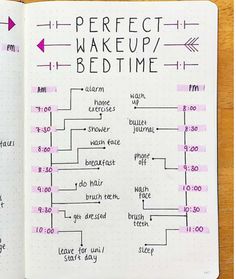 PERFECT
WAKEUP/
BEDTIME
AM
PM
alarm
7:00
home
exercises
7:30
shower
8:00
wash face
8:30
breakfast
9:00
do hair
brush teeth
9:30
get dressed
10:00
leave for uni/
start day
wash
up
8:00
bullet
journal
8:30
9:00
phone
off
9:30
10:00
wash
face
10:30
brush
teeth
11:00
sleep